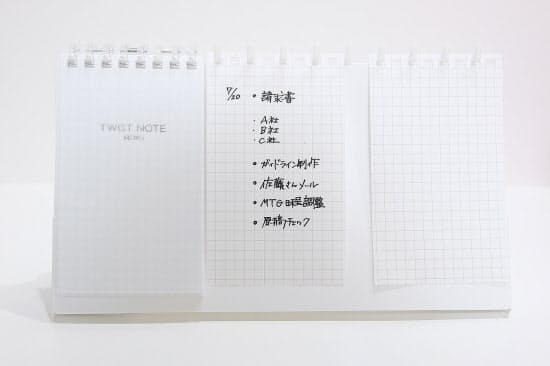 TWIST NOTE
MEMO
7/20 • 請求書
・A社
・B社
・C社
• ガイドライン制作
• 佐藤さんメール
• MTG日程調整
• 原稿チェック